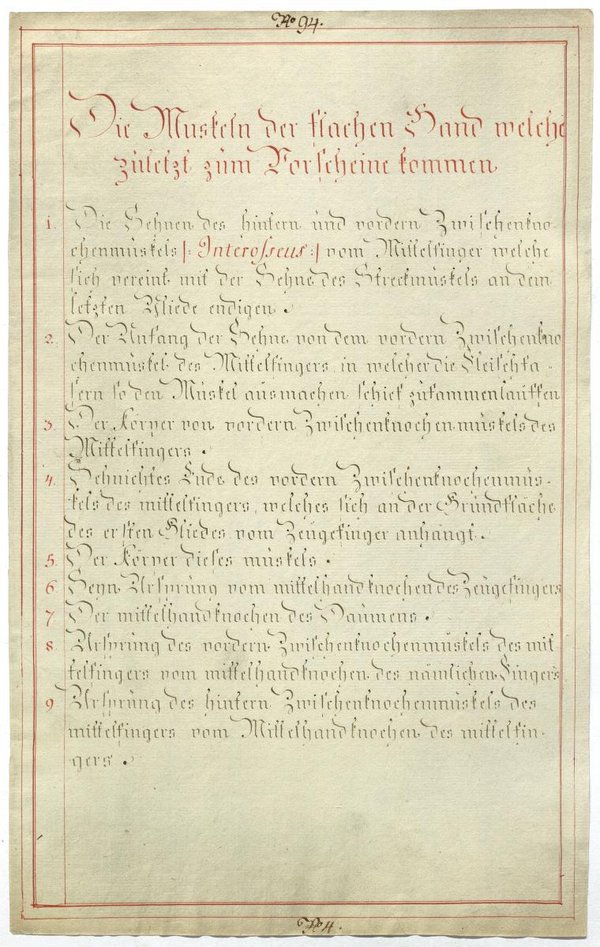 No 94.
Die Muskeln der flachen Hand welche
zuletzt zum Vorscheine kommen
1. Die Sehnen des hintern und vordern Zwischenkno-
chenmuskels |: Interosseus :| vom Mittelfinger welche
sich vereint mit der Sehne des Streckmuskels an dem
letzten Gliede endigen.
2. Der Anfang der Sehne von dem vordern Zwischenkno
chenmuskel des Mittelfingers, in welcher die Fleischfa-
sern so den Muskel ausmachen schief zusammenlauffen
3. Der Körper von vordern Zwischenknochenmuskels des
Mittelfingers.
4. Sehnichtes Ende des vordern Zwischenknochenmus-
kels des mittelfingers, welches sich an der Grundfläche
des ersten Gliedes vom Zeugefinger anhängt.
5. Der Körper dieses muskels.
6 Seyn Ursprung vom mittelhandknochen des Zeugefingers
7 Der mittelhandknochen des Daumens.
8 Ursprung des vordern Zwischenknochenmuskels des mit
telfingers vom mittelhandknochen des nämlichen Fingers
9 Ursprung des hintern Zwischenknochenmuskels des
mittelfingers vom Mittelhandknochen des mittelfin-
gers.
No 4.